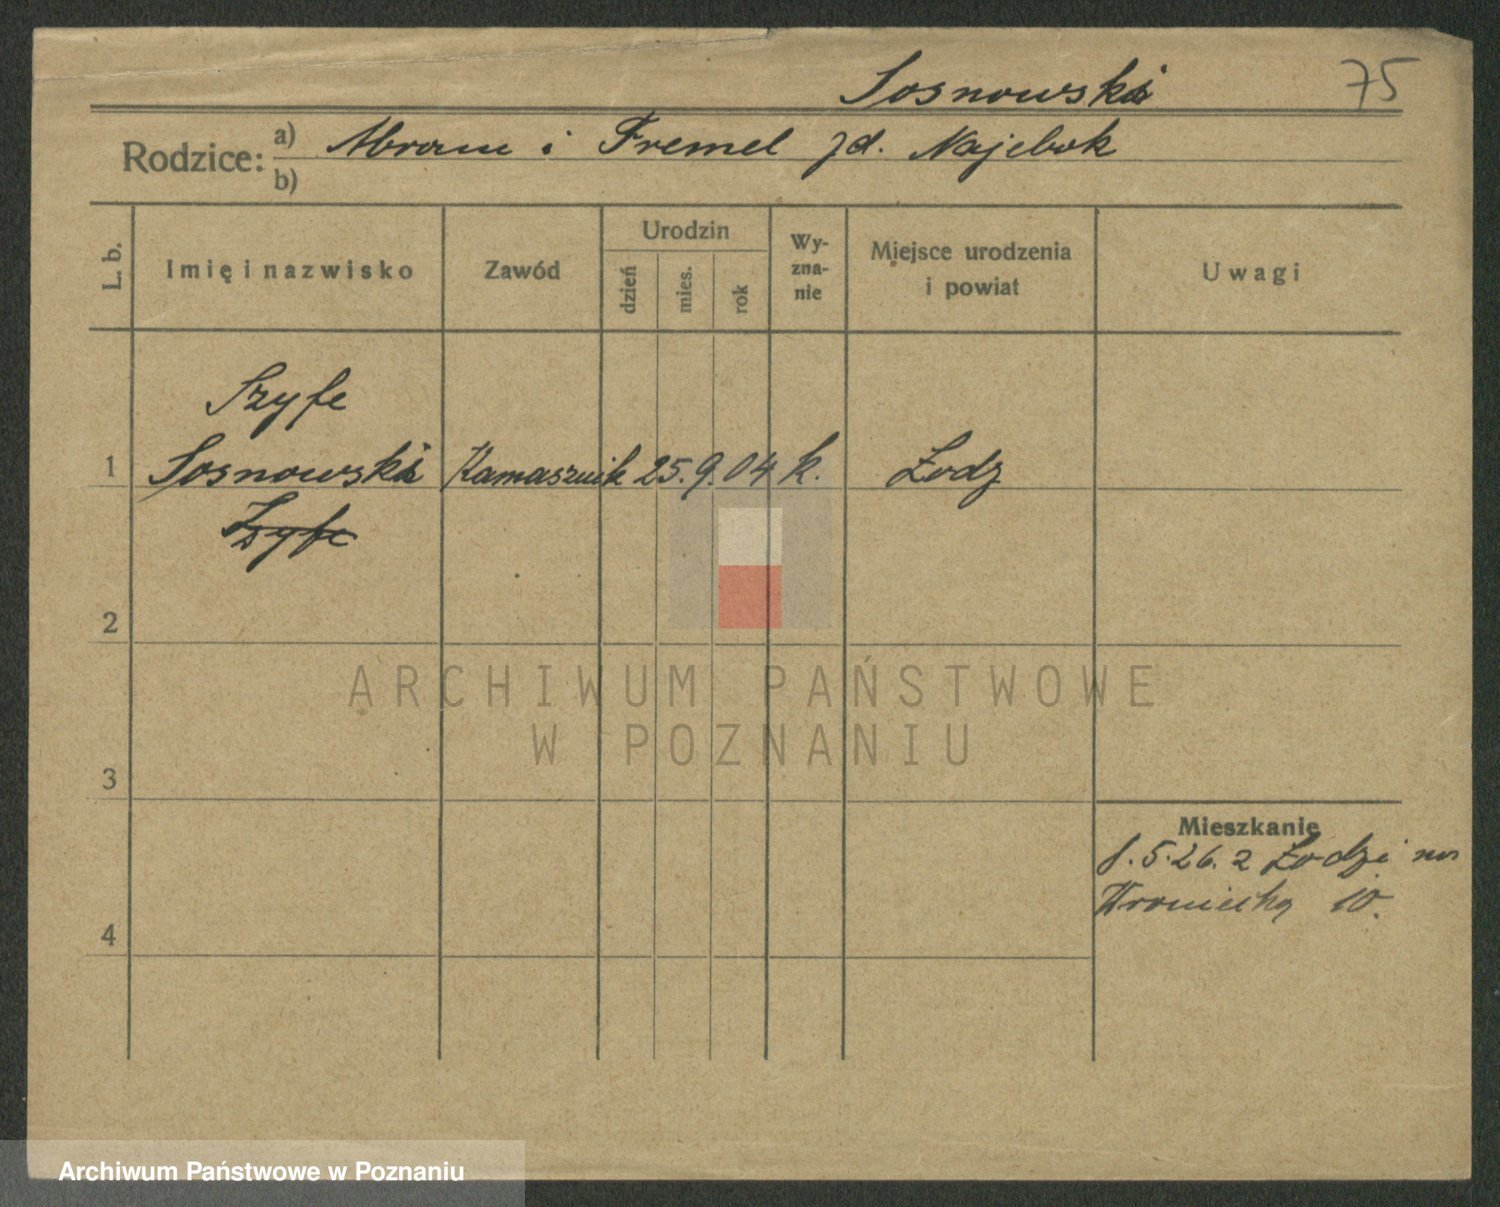 Sosnowski 75
Rodzice: a) Abram i Fremel zd. Najebok
b)
L. b. Imię i nazwisko Zawód Urodzin dzień mies. rok Wyznanie Miejsce urodzenia i powiat Uwagi
Szyfe
1 Sosnowski Kamasznik 25. 9. 04 k. Łodz
Szyfe
2
ARCHIWUM PAŃSTWOWE
W POZNANIU
3
Mieszkanie
5.26. z Łodzi
Wroniecka 10.
4
Archiwum Państwowe w Poznaniu